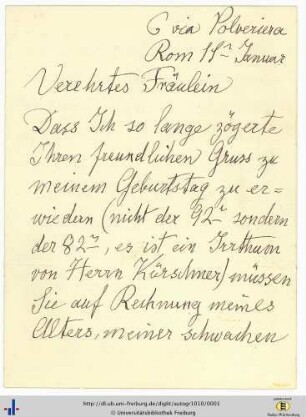 6 via Polveriera
Rom 15n Januar
Verehrtes Fräulein
Dass Ich so lange zögerte
Ihren freundlichen Gruss zu
meinem Geburtstag zu er=
wiedern (nicht der 92r sondern
der 82r, es ist ein Irrthum
von Herrn Kürschner) müssen
Sie auf Rechnung meines
Alters, meiner schwachen
http://dl.ub.uni-freiburg.de/diglit/autogr1010/0001
© Universitätsbibliothek Freiburg